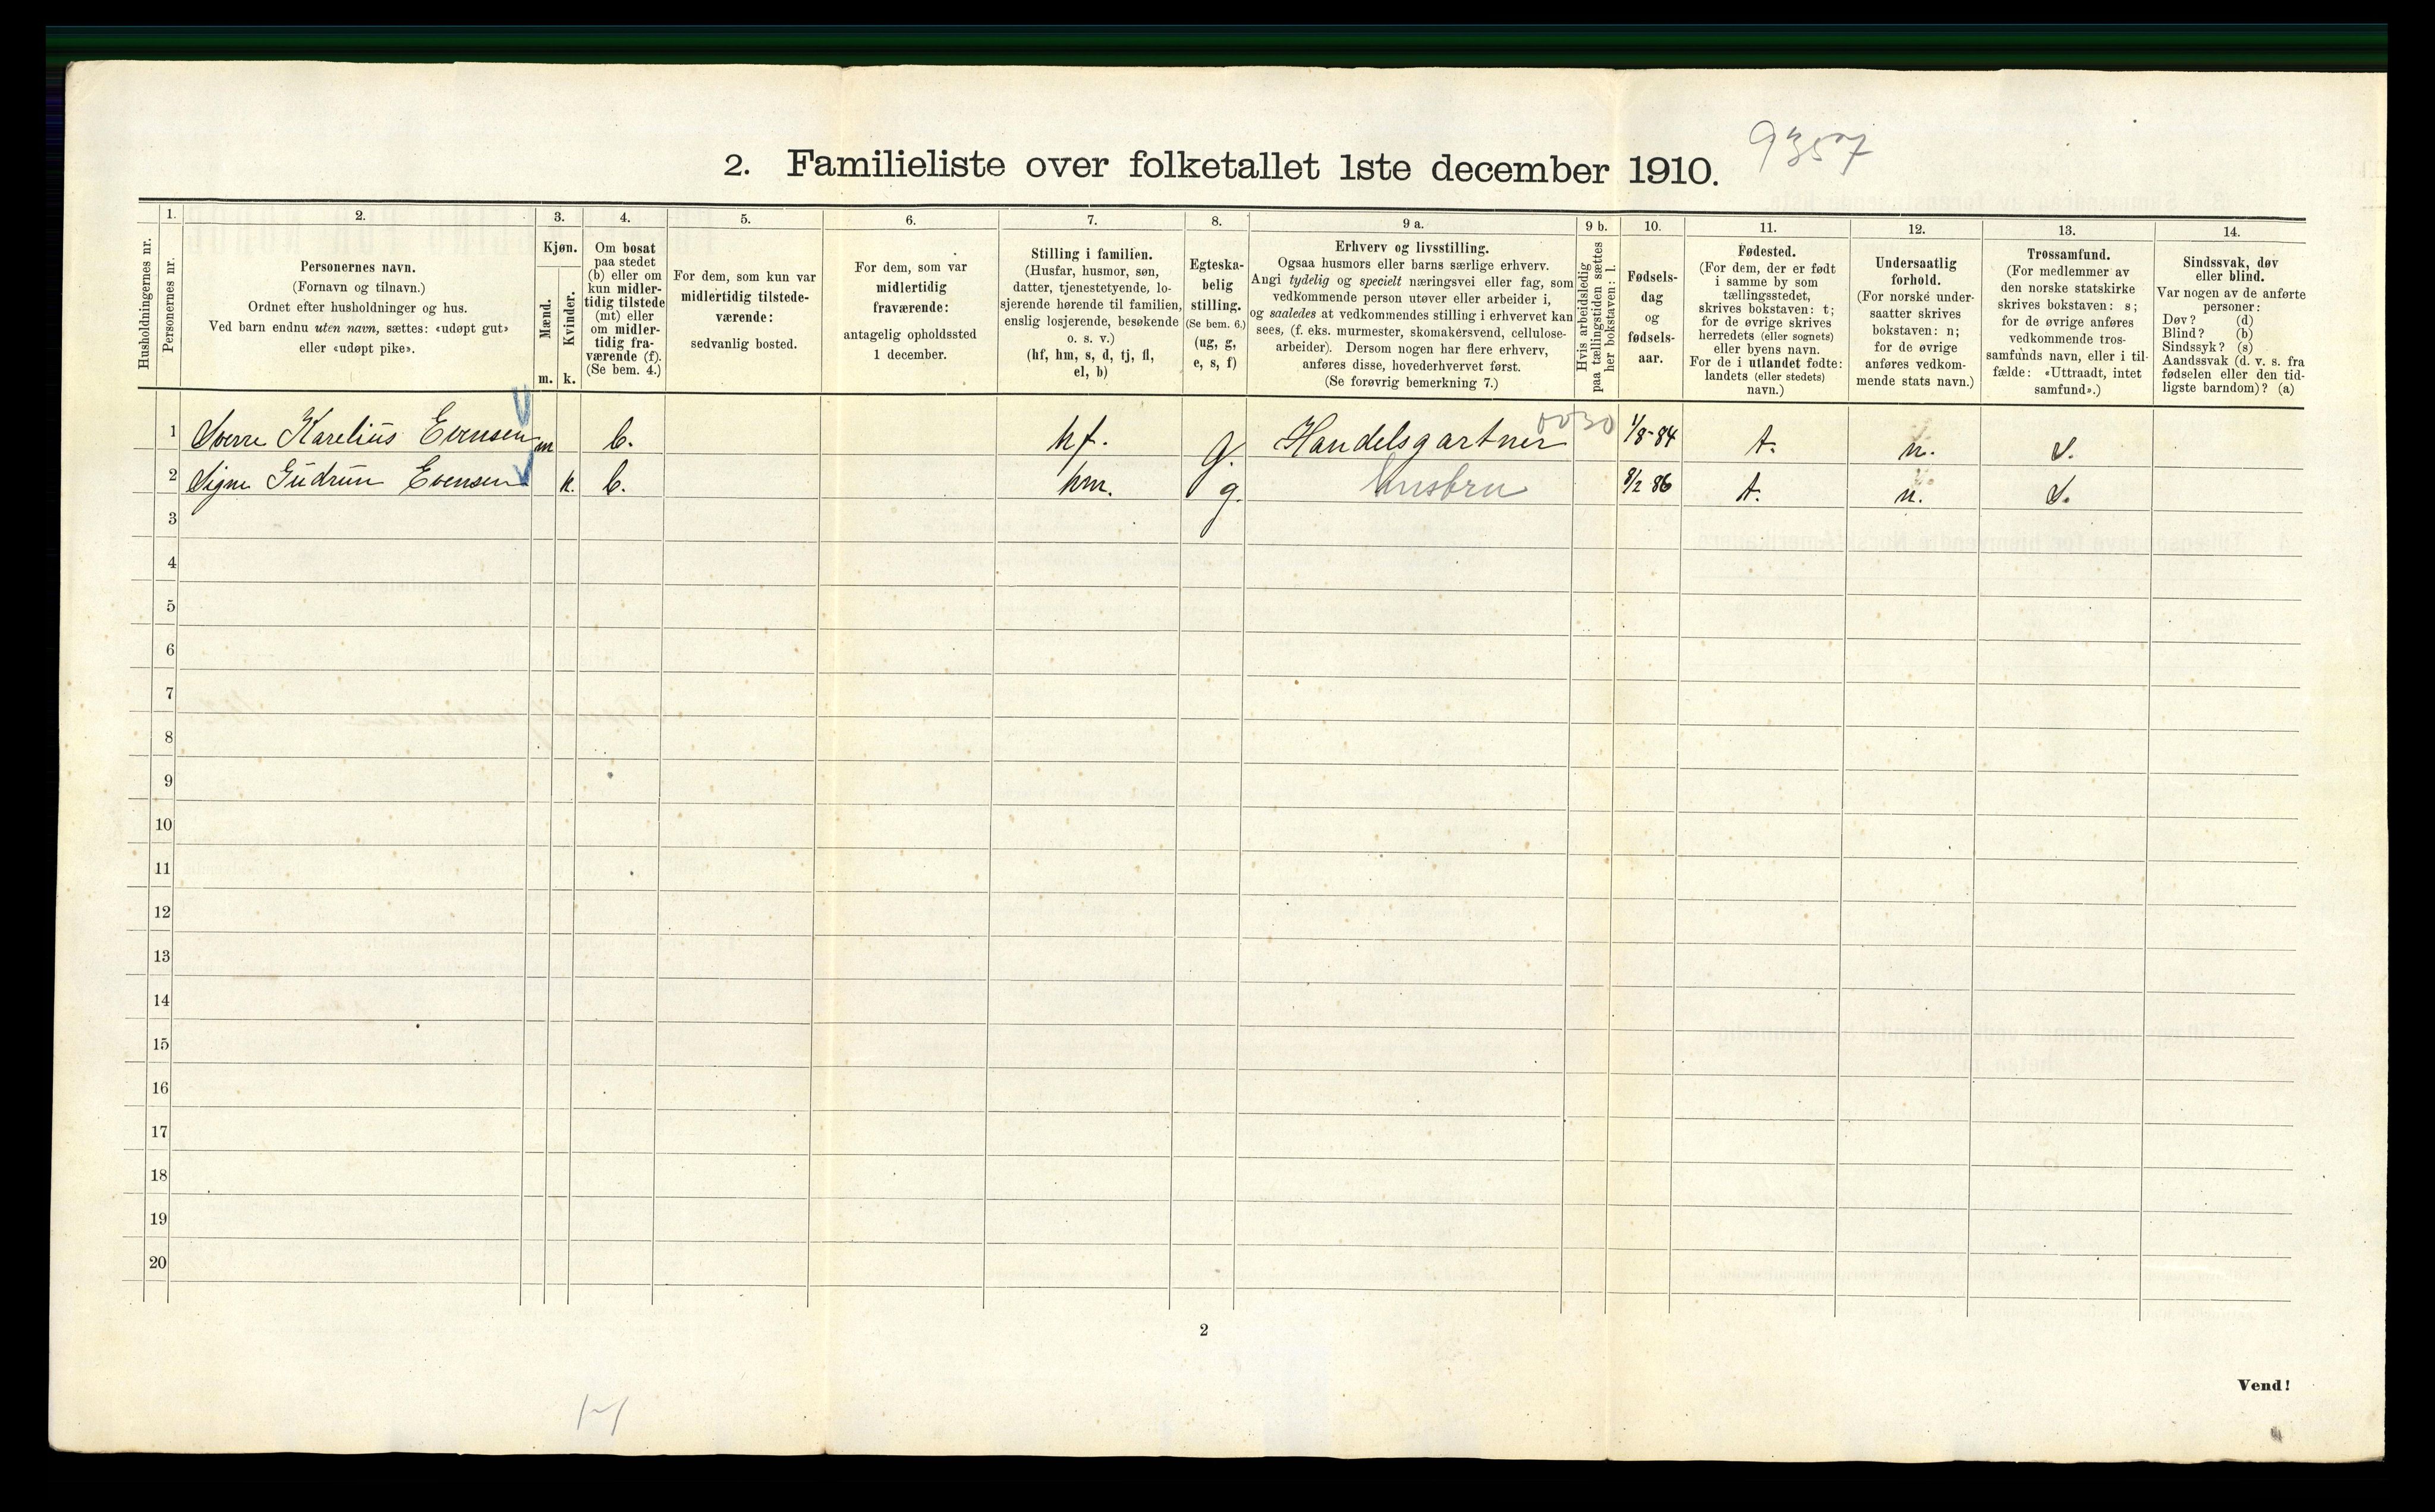 2. Familieliste over folketallet 1ste december 1910.
9357
Husholdningernes nr.
1.
Personernes nr.
2.
Personernes navn.
(Fornavn og tilnavn.)
Ordnet efter husholdninger og hus.
Ved barn endnu uten navn, sættes: «udøpt gut»
eller «udøpt pike».
3.
Kjøn.
Mænd.
m.
Kvinder.
k.
4.
Om bosat
paa stedet
(b) eller om
kun midler-
tidig tilstede
(mt) eller
om midler-
tidig fra-
værende (f).
(Se bem. 4.)
5.
For dem, som kun var
midlertidig tilstede-
værende:
sedvanlig bosted.
6.
For dem, som var
midlertidig
fraværende:
antagelig opholdssted
1 december.
7.
Stilling i familien.
(Husfar, husmor, søn,
datter, tjenestetyende, lo-
sjerende hørende til familien,
enslig losjerende, besøkende
o. s. v.)
(hf, hm, s, d, tj, fl,
el, b)
8.
Egteska-
belig
stilling.
(Se bem. 6.)
(ug, g,
e, s, f)
9 a.
Erhverv og livsstilling.
Ogsaa husmors eller barns særlige erhverv.
Angi tydelig og specielt næringsvei eller fag, som
vedkommende person utøver eller arbeider i,
og saaledes at vedkommendes stilling i erhvervet kan
sees, (f. eks. murmester, skomakersvend, cellulose-
arbeider). Dersom nogen har flere erhverv,
anføres disse, hovederhvervet først.
(Se forøvrig bemerkning 7.)
9 b.
Hvis arbeidsledig
paa tællingstiden sættes
her bokstaven: l.
10.
Fødsels-
dag
og
fødsels-
aar.
11.
Fødested.
(For dem, der er født
i samme by som
tællingsstedet,
skrives bokstaven: t;
for de øvrige skrives
herredets (eller sognets)
eller byens navn.
For de i utlandet fødte:
landets (eller stedets)
navn.)
12.
Undersaatlig
forhold.
(For norske under-
saatter skrives
bokstaven: n;
for de øvrige
anføres vedkom-
mende stats navn.)
13.
Trossamfund.
(For medlemmer av
den norske statskirke
skrives bokstaven: s;
for de øvrige anføres
vedkommende tros-
samfunds navn, eller i til-
fælde: «Uttraadt, intet
samfund».)
14.
Sindssvak, døv
eller blind.
Var nogen av de anførte
personer:
Døv? (d)
Blind? (b)
Sindssyk? (s)
Aandssvak (d. v. s. fra
fødselen eller den tid-
ligste barndom)? (a)
1 Sverre Karelius Evensen m b. hf. g. Handelsgartner 0030 1/8-84 t. n. s.
2 Signe Gudrun Evensen k. b. hm. g. husbru 8/2 86 t. n. s.
3
4
5
6
7
8
9
10
11
12
13
14
15
16
17
18
19
20
2
Vend!
1-1